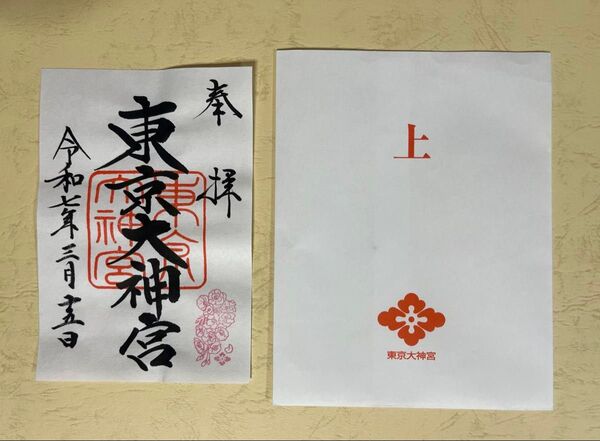 奉拝
東京大神宮
東京
大神宮
令和七年三月十五日
上
東京大神宮